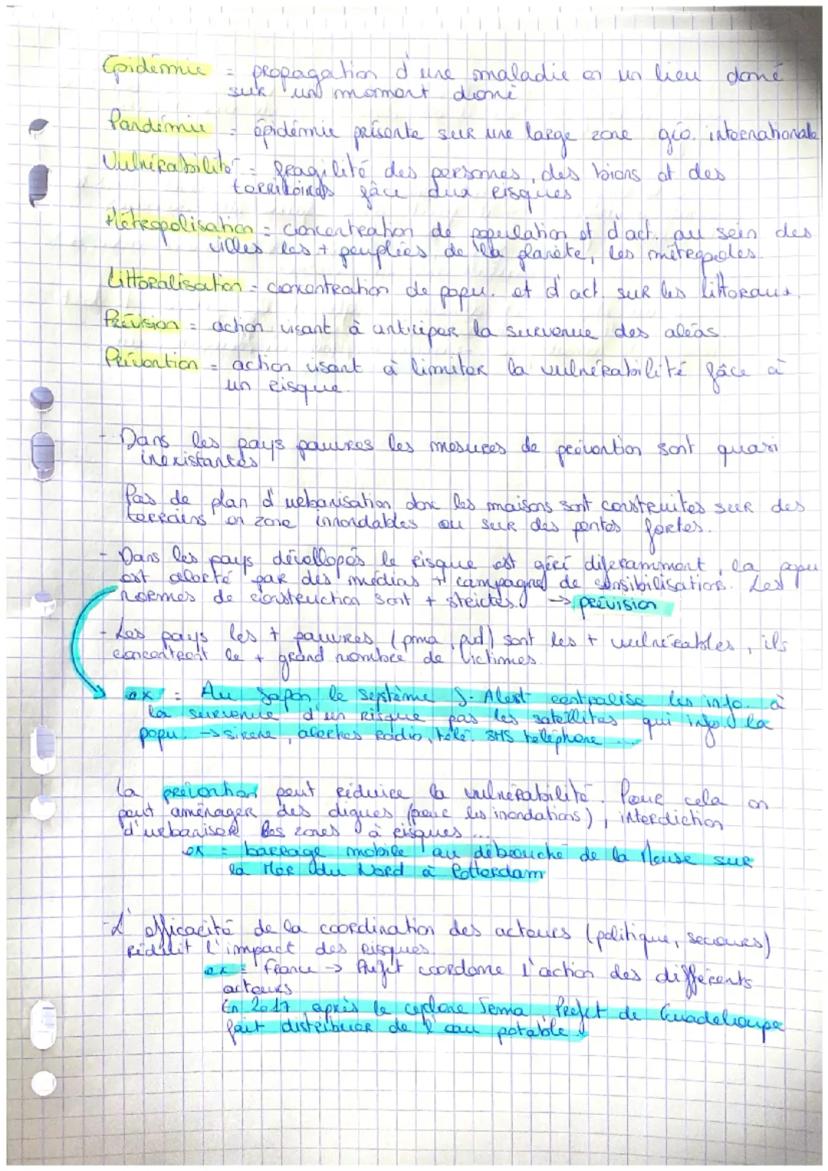 Epidémie = propagation d'une maladie en un lieu donné
sur un moment donné
Pandémie = épidémie présente sur une large zone géo. internationale
Vulnérabilité = fragilité des personnes, des biens et des
territoires fâce aux risques
Métropolisation = concentration de population et d'act. au sein des
villes les + peuplées de la planète, les métropoles.
Littoralisation = concentration de popu. et d'act. sur les littoraux.
Prévision = action visant à anticiper la survenue des aléas.
Prévention = action visant à limiter la vulnérabilité fâce à
un risque.
- Dans les pays pauvres les mesures de prévention sont quasi
inexistantes
Pas de plan d'urbanisation donc les maisons sont construites sur des
terrains en zone innondables ou sur des pentes fortes.
- Dans les pays dévellopés le risque est géré diferamment, la popu
est alerté par des médias + campagnes de sensibilisation. Les
normes de construction sont + strictes. → prévision
- Les pays les + pauvres (pma, pvd) sont les + vulnérables, ils
concentrent le + grand nombre de victimes.
ex : Au Japon le système J-Alert centralise les info. à
la survenue d'un risque pas les satellites qui info. la
popu. → sirene, alertes radio, télé. SMS telephone ...
La prévention peut réduire la vulnérabilité. Pour cela on
peut aménager des digues (pour les inondations), interdiction
d'urbaniser les zones à risques ...
ex = barrage mobile au débouché de la Meuse sur
la Mer du Nord à Rotterdam
- L'efficacité de la coordination des acteurs (politique, secours)
réduit l'impact des risques.
ex = France → Préfet coordonne l'action des différents
acteurs
En 2017 après le cyclone Irma, Préfet de Guadeloupe
fait distribuer de l'eau potable.